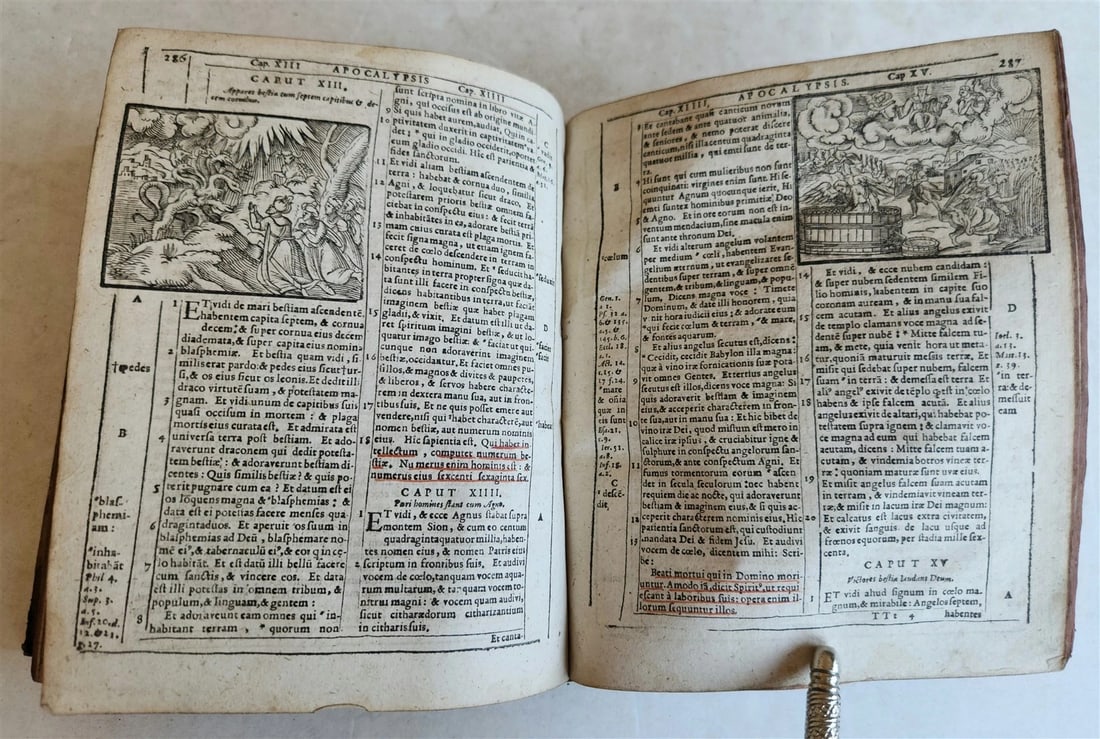 286
Cap. XIII
APOCALYPSIS
Cap. XIIII
CAPUT XIII.
Apparet bestia cum septem capitibus & de-
cem cornibus.
A
B
†pedes
*blas-
phemi-
am:
*inha-
bitabāt
Phil 4.
a.3.
Sup. 3.
a.5.
1 ET vidi de mari bestiam ascendentē,
habentem capita septem, & cornua
decem; & super cornua eius decem
diademata, & super capita eius nomina
2 blasphemiæ. Et bestia quam vidi, si-
milis erat pardo: & pedes eius sicut † ur-
si, & os eius sicut os leonis. Et dedit illi
draco virtutē suam, & potestatem ma-
3 gnam. Et vidi unum de capitibus suis
quasi occisum in mortem: & plaga
mortis eius curata est. Et admirata est
4 universa terra post bestiam. Et ado-
raverunt draconem qui dedit potesta-
tem bestiæ: & adoraverunt bestiam di-
centes: Quis similis bestiæ? & quis po-
5 terit pugnare cum ea? Et datum est ei
os loquens magna & *blasphemias: &
data est ei potestas facere menses qua-
6 draginta duos. Et aperuit os suum in
blasphemias ad Deū, blasphemare no-
mē ei⁹, & tabernaculū ei⁹, & eos qui in cę-
7 lo habitāt. Et est datū illi bellū facere
cum sanctis, & vincere eos. Et data
est illi potestas in omnem tribum, &
populum, & linguam, & gentem:
8 Et adoraverunt eam omnes qui *in-
habitant terram, * quorum non
sunt scripta nomina in libro vitæ A-
gni, qui occisus est ab origine mundi.
9 Si quis habet aurem, audiat. Qui in ca-
10 ptivitatem duxerit, in captivitatem va-
det; * qui in gladio occiderit, oportet
eum gladio occidi. Hic est patientia &
fides sanctorum.
11 Et vidi aliam bestiam ascendentem de
terra: & habebat cornua duo, similia
12 Agni, & loquebatur sicut draco. Et
potestatem prioris bestiæ omnem fa-
ciebat in conspectu eius: & fecit terrā
& inhabitātes in ea, adorare bestiā pri-
13 mam cuius curata est plaga mortis. Et
fecit signa magna, ut etiam ignem fa-
ceret de cœlo descendere in terram in
14 conspectu hominum. Et * seduxit ha-
bitantes in terra propter signa quæ da-
ta sunt illi facere in conspectu bestiæ,
dicens habitantibus in terra, ut faciāt
imaginem bestiæ quæ habet plagam
15 gladii, & vixit. Et datum est illi ut da-
ret spiritum imagini bestiæ, & ut lo-
quatur imago bestiæ: & * faciat ut qui-
cunque non adoraverint imaginem
16 bestiæ, occidantur. Et faciet omnes pu-
sillos, & magnos & divites & pauperes,
& liberos, & servos habere characte-
rem in dextera manu sua, aut in fron-
17 tibus suis. Et ne quis posset emere aut
vendere, nisi qui * habet characterē, aut
nomen bestiæ, aut numerum nominis
18 eius. Hic sapientia est. Qui habet in-
tellectum, computet numerum be-
stiæ. Numerus enim hominis est: &
numerus eius sexcenti sexaginta sex.
CAPUT XIIII.
Pari homines stant cum Agno.
1 ET vidi, & ecce Agnus stabat supra
montem Sion, & cum eo centum
quadraginta quatuor millia, haben-
tes nomen eius, & nomen Patris eius
2 scriptum in frontibus suis. Et audivi
vocem de cœlo, tanquam vocem aqua-
rum multarum, & tanquam vocem to-
nitrui magni: & vocem quam audivi,
sicut citharœdorum citharizantium
in citharis suis.
Et canta-
C
D
A
Cap. XIIII,
APOCALYPSIS.
Cap XV.
287
B
*cœlum
Gen. 1.
C
3 Et cantabant quasi canticum novum
ante sedem & ante quatuor animalia,
& seniores, & nemo poterat discere
canticum, nisi illa centum quadraginta
quatuor millia, qui emti sunt de ter-
ra.
4 Hi sunt qui cum mulieribus non sunt
coinquinati: virgines enim sunt. Hi se-
quuntur Agnum quocunque ierit, Hi
emti sunt ex hominibus primitiæ Deo
5 & Agno. Et in ore eorum non est in-
ventum mendacium, sine macula enim
sunt ante thronum Dei.
6 Et vidi alterum angelum volantem
per medium * cœli, habentem Evan-
gelium æternum, ut evangelizaret se-
dentibus super terram, & super omnē
gentem, & tribum, & linguam, & popu-
7 lum, Dicens magna voce: Timete
Dominum, & date illi honorem, quia
venit hora iudicii eius; & adorate eum,
* qui fecit cœlum & terram, * & mare,
& fontes aquarum.
8 Et alius angelus secutus est, dicens:
* Cecidit, cecidit Babylon illa magna:
quæ à vino iræ fornicationis suæ pota-
9 vit omnes Gentes. Et tertius angelus
secutus est illos, dicens voce magna: Si
quis adoraverit bestiam & imaginem
eius, & acceperit characterem in fron-
10 te sua, aut in manu sua: Et hic bibet de
vino iræ Dei, quod mistum est mero in
calice iræ ipsius, & cruciabitur igne &
sulphure in conspectu angelorum san-
11 ctorum, & ante conspectum Agni. Et
fumus tormentorum eorum * ascen-
det in secula seculorum: nec habent
requiem die ac nocte, qui adoraverunt
bestiam & imaginem eius, & si quis ac-
12 ceperit characterem nominis eius, Hic
patientia sanctorum est, qui custodiunt
13 mandata Dei & fidem Jesu. Et audivi
vocem de cœlo, dicentem mihi: Scri-
be:
Beati mortui qui in Domino mori-
untur. Amodo iā, dicit Spirit⁹, ut requi
escant à laboribus suis: opera enim il-
lorum sequuntur illos.
14 Et vidi, & ecce nubem candidam:
& super nubem sedentem similem Fi-
lio hominis, habentem in capite suo
coronam auream, & in manu sua fal-
15 cem acutam. Et alius angelus exivit
de templo clamans voce magna ad se-
dentē super nubē: * Mitte falcem tu-
am, & mete, quia venit hora ut meta-
16 tur, quoniā maturuit messis terræ. Et
misit qui sedebat super nubem, falcem
17 suam * in terrā: & demessa est terra. Et
ali⁹ angel⁹ exivit de tēplo qđ est in cœlo
18 habens & ipse falcem acutā. Et alius
angelus exivit de altari, qui habebat po-
testatem supra ignem; & clamavit vo-
ce magna ad eum qui habebat falcem
acutam, dicens: Mitte falcem tuam a-
cutam, & vindemia botros vineæ ter-
ræ: quoniam maturæ sunt uvæ eius.
19 Et misit angelus falcem suam acutam
in terram, & vindemiavit vineam ter-
ræ, & misit in lacum iræ Dei magnum:
20 Et calcatus est lacus extra civitatem,
& exivit sanguis de lacu usque ad
frœnos equorum, per stadia mille sex-
centa.
CAPUT XV
Victores bestiæ laudant Deum.
1 ET vidi aliud signum in cœlo ma-
gnum, & mirabile: Angelos septem,
TTt 4
habentes
D
*in ter-
ra: & de-
messuit
eam
A